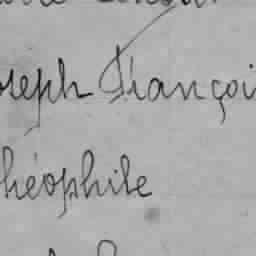 oseph Françoi
héophile